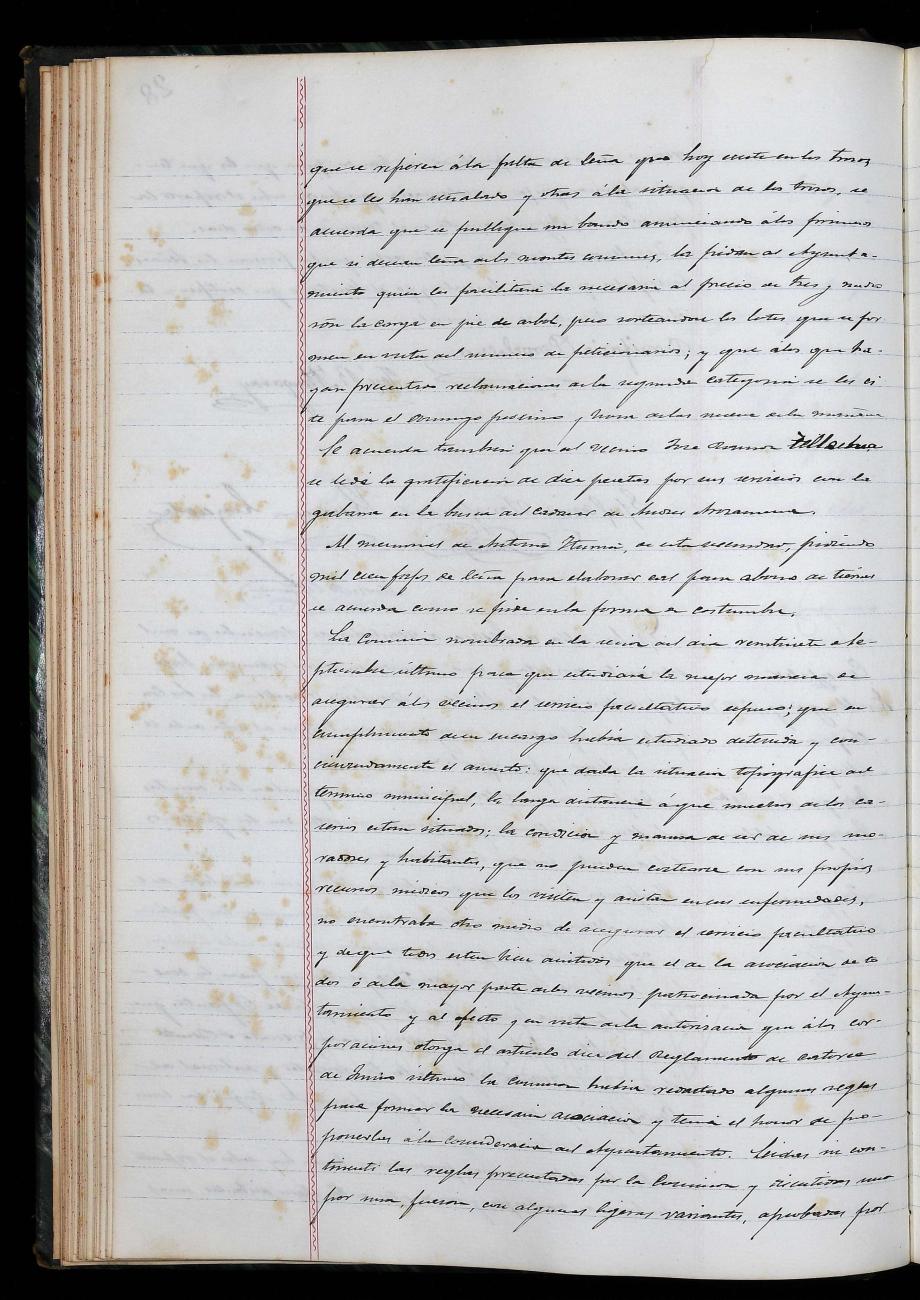 que se refieren á la falta de leña que hoy existe en los trozos
que se les han señalado y otras á la situacion de los trozos, se
acuerda que se publique un bando anunciando á los primeros
que si desean leña de los montes comunes, la pidan al Ayunta-
miento quien les facilitará la necesaria al precio de tres y medio
la carga en pie de arbol, pero sorteandose los lotes que se for
men en vista del numero de peticionarios; y que á los que ha-
yan presentado reclamaciones de la segunda categoria se les ci
te para el domingo proximo y hora de las nueve de la mañana
Se acuerda tambien que al vecino José
se le dé la gratificacion de diez pesetas por sus servicios con la
gabarra en la busca del cadaver de Andres
Al memorial de Antonio Iturria, de esta vecindad, pidiendo
mil cien fajos de leña para elaborar cal para abono de tierras
se acuerda como se pide en la forma de costumbre.
La Comision nombrada en la sesion del dia veintisiete de Se-
ptiembre último para que estudiará la mejor manera de
asegurar á los vecinos el servicio facultativo expuso; que en
cumplimiento de su encargo habia estudiado detenida y con-
cienzudamente el asunto: que dada la situacion topografica del
termino municipal, la larga distancia á que muchos de los ca-
serios estan situados; la condicion y manera de ser de sus mo-
radores y habitantes, que no pueden costearse con sus propios
recursos médicos que los visiten y asistan en sus enfermedades,
no encontraba otro medio de asegurar el servicio facultativo
y de que todos esten bien asistidos que el de la asociacion de to
dos ó de la mayor parte de los vecinos patrocinada por el Ayun-
tamiento y al efecto y en vista de la autorizacion que á las cor-
poraciones otorga el articulo diez del Reglamento de catorce
de Junio último la comision habia redactado algunas reglas
para formar la necesaria asociacion y tenia el honor de pro-
ponerlas á la consideracion del Ayuntamiento. Leidas in con-
tinenti las reglas presentadas por la Comision y discutidas una
por una, fueron, con algunas ligeras variantes, aprobadas por